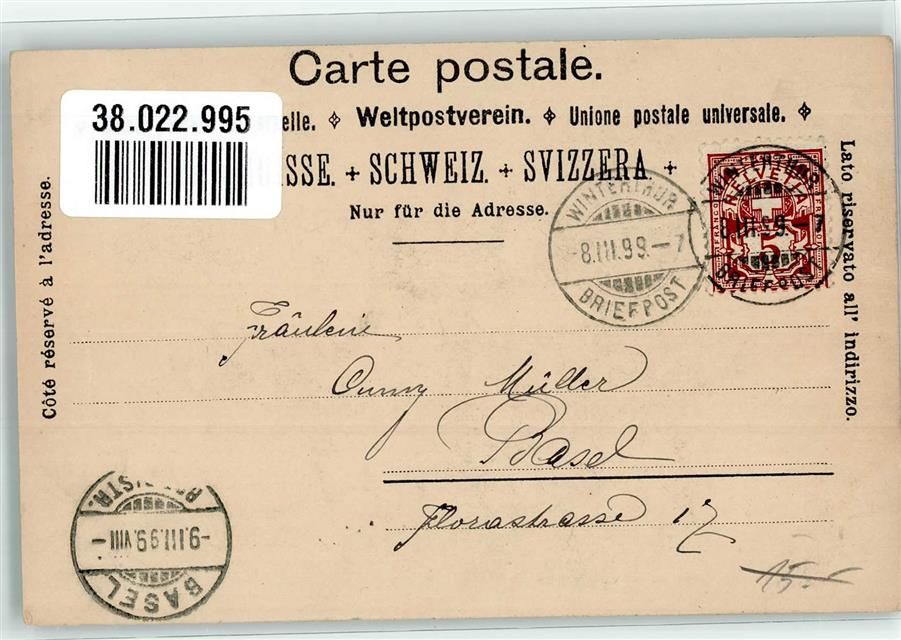 Carte postale.
38.022.995
elle. Weltpostverein. Unione postale universale.
ISSE. + SCHWEIZ. + SVIZZERA +
Nur für die Adresse.
Côté réservé à l'adresse.
Lato riservato all' indirizzo.
WINTERTHUR
-8.III.99.-7
BRIEFPOST
WINTERTHUR
HELVETIA
FRANCO
5
8.III.99.-7
BRIEFPOST
Fräulein
Müller
Basel
Florastrasse 17
-9.III.99.VIII-
BASEL
15.-